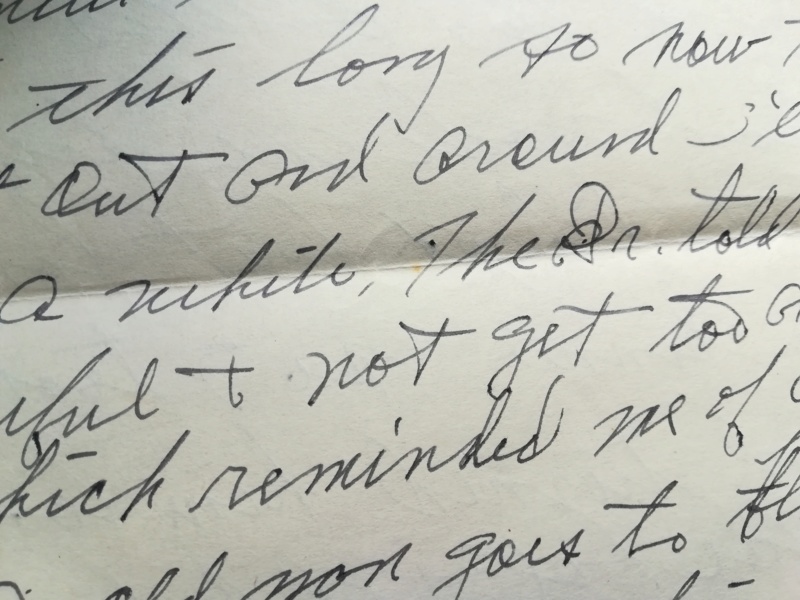 this long to now
out and around i'll
a while, The Dr. told
ful + not get too
hich reminded me of
old man goes to